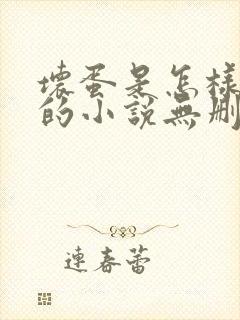 壞蛋是怎樣
的小說無刪
連春蕾